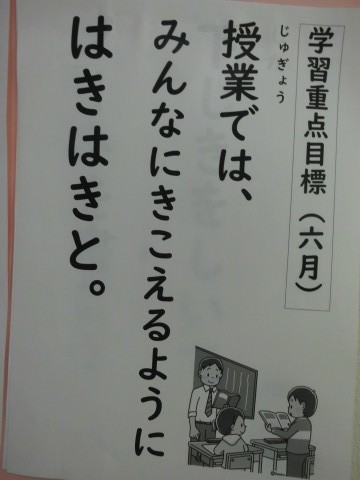 学習重点目標（六月）
じゅぎょう
授業では、
みんなにきこえるように
はきはきと。